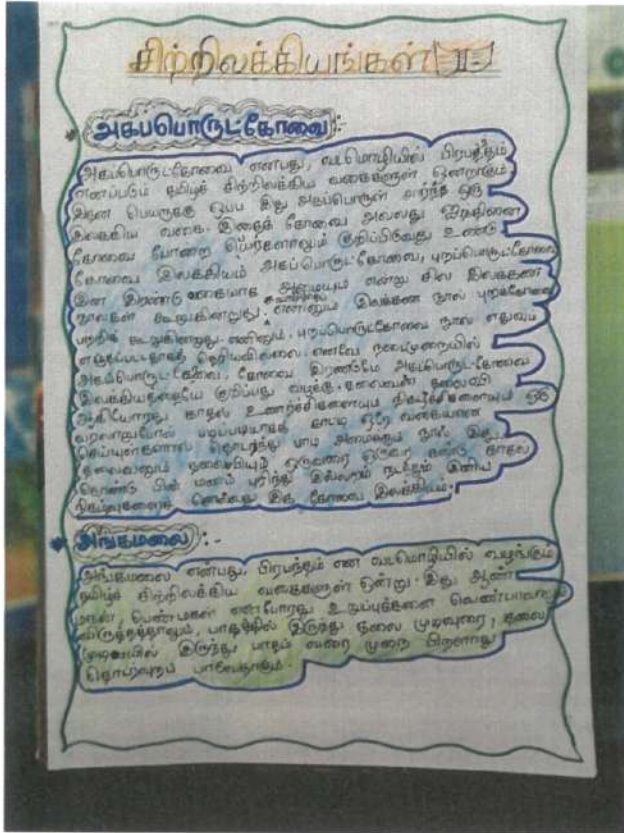 சிற்றிலக்கியங்கள்
அகப்பொருட்கோவை :-
அகப்பொருட்கோவை என்பது, வடமொழியில் பிரபந்தம்
எனப்படும் தமிழ்ச் சிற்றிலக்கிய வகைகளுள் ஒன்றாகும்
இதன் பெயருக்கு ஒப்ப இது அகப்பொருள் சார்ந்த ஒரு
இலக்கிய வகை. இதைக் கோவை அல்லது ஐந்திணை
கோவை போன்ற பெயர்களாலும் குறிப்பிடுவது உண்டு.
கோவை இலக்கியம் அகப்பொருட்கோவை, புறப்பொருட்கோவை
இன இரண்டு வகையாக அமையும் என்று சில இலக்கண
நூல்கள் கூறுகின்றது. என்னும் இலக்கண நூல் புறக்கோவை
பற்றிக் கூறுகின்றது. எனினும், புறப்பொருட்கோவை நூல் எதுவும்
எழுதப்பட்டதாகத் தெரியவில்லை. எனவே நடைமுறையில்
அகப்பொருட்கோவை, கோவை இரண்டுமே அகப்பொருட்கோவை
இலக்கியத்தையே குறிப்பது வழக்கு. தலைவன் தலைவி
ஆகியோரது காதல் உணர்ச்சிகளையும் நிகழ்ச்சிகளையும் ஒரு
வரலாறுபோல் படிப்படியாகக் காட்டி ஒரே வகையான
செய்யுள்களால் தொடர்ந்து பாடி அமைக்கும் நூல் இது.
தலைவனும் தலைவியும் ஒருவரை ஒருவர் கண்டு காதல்
கொண்டு பின் மணம் புரிந்து இல்லறம் நடத்தும் இனிய
நிகழ்வுகளைச் சொல்வது இக் கோவை இலக்கியம்.
அங்கமாலை :-
அங்கமாலை என்பது, பிரபந்தம் என வடமொழியில் வழங்கும்
தமிழ்ச் சிற்றிலக்கிய வகைகளுள் ஒன்று. இது ஆண்
மகன், பெண்மகள் என்போரது உறுப்புக்களை வெண்பாவாலும்
விருத்தத்தாலும், பாதத்தில் இருந்து தலை முடிவுரை, தலை
முடியில் இருந்து பாதம் வரை முறை பிறளாது
தொடர்வுறப் பாடுவதாகும்.